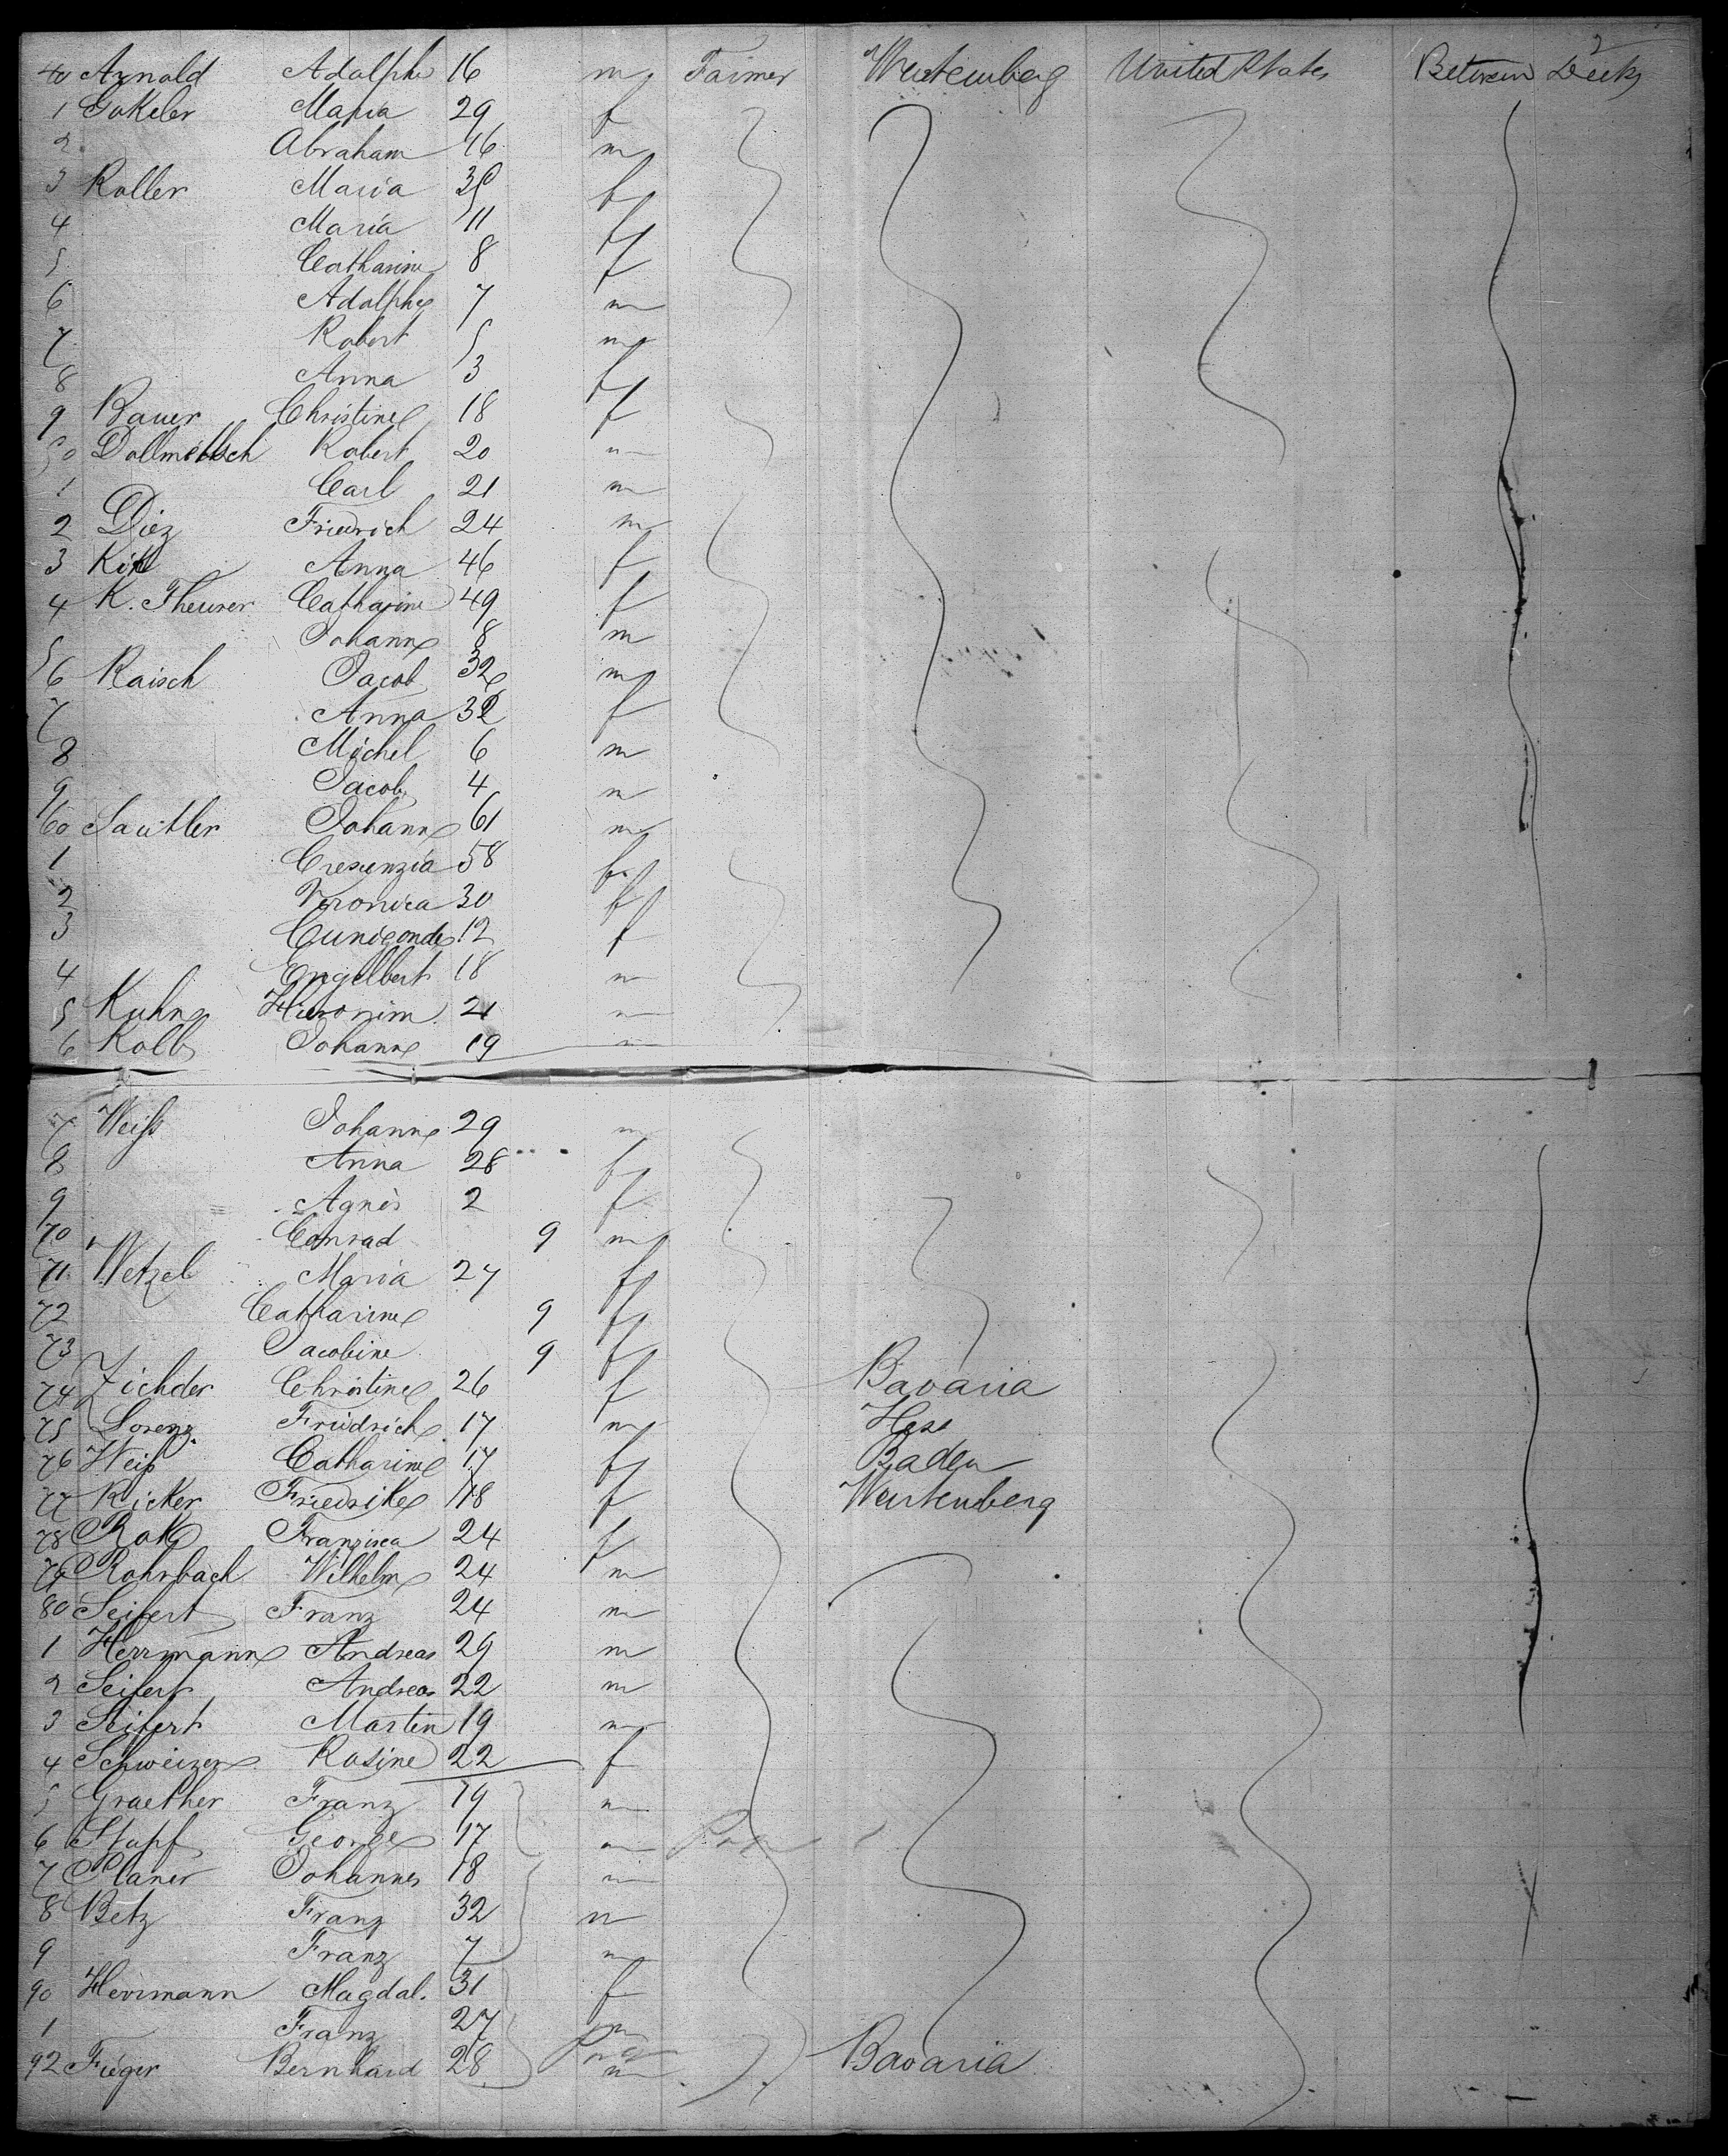 2
40 Arnold Adolphe 16 m Farmer Wurtemberg United States Between Decks
1 Gokeler Maria 29 f
2 Abraham 46 m
3 Roller Maria 35 f
4 Maria 11 f
5 Catharine 8 f
6 Adolphe 7 m
7 Robert 5 m
8 Anna 3 f
9 Bauer Christine 18 f
50 Dollmetsch Robert 20 m
1 Carl 21 m
2 Diez Friedrich 24 m
3 Anna 46 f
4 K. Theurer Catharine 49 f
5 Johann 8 m
6 Raisch Jacob 32 m
7 Anna 32 f
8 Michel 6 m
9 Jacob 4 m
60 Sautler Johann 61 m
1 Crescenzia 58 f
2 Veronica 30 f
3 Cunigonde 12 f
4 Engelbert 18 m
5 Kuhn Hieronim. 21 m
6 Kolb Johann 19 m
7 Weiß Johann 29 m
8 Anna 28 f
9 Agnes 2 f
70 Conrad 9 m
71 Wetzel Maria 27 f
72 Catharine 9 f
73 Jacobine 9 f
74 Zichder Christine 26 f Bavaria
75 Lorenz Friedrich 17 m Hess
76 Weiß Catharine 17 f Baden
77 Ricker Friedrike 18 f Wurtemberg
78 Rok Franzisca 24 f
79 Rohrbach Wilhelm 24 m
80 Seifert Franz 24 m
1 Herrmann Andreas 29 m
2 Seifert Andreas 22 m
3 Seifert Martin 19 m
4 Schweizer Rosine 22 f
5 Graether Franz 19 m
6 Stapf George 17 m
7 Planer Johannes 18 m
8 Betz Franz 32 m
9 Franz 7 m
90 Herrmann Magdal. 31 f
1 Franz 27 m
92 Fieger Bernhard 28 m Bavaria